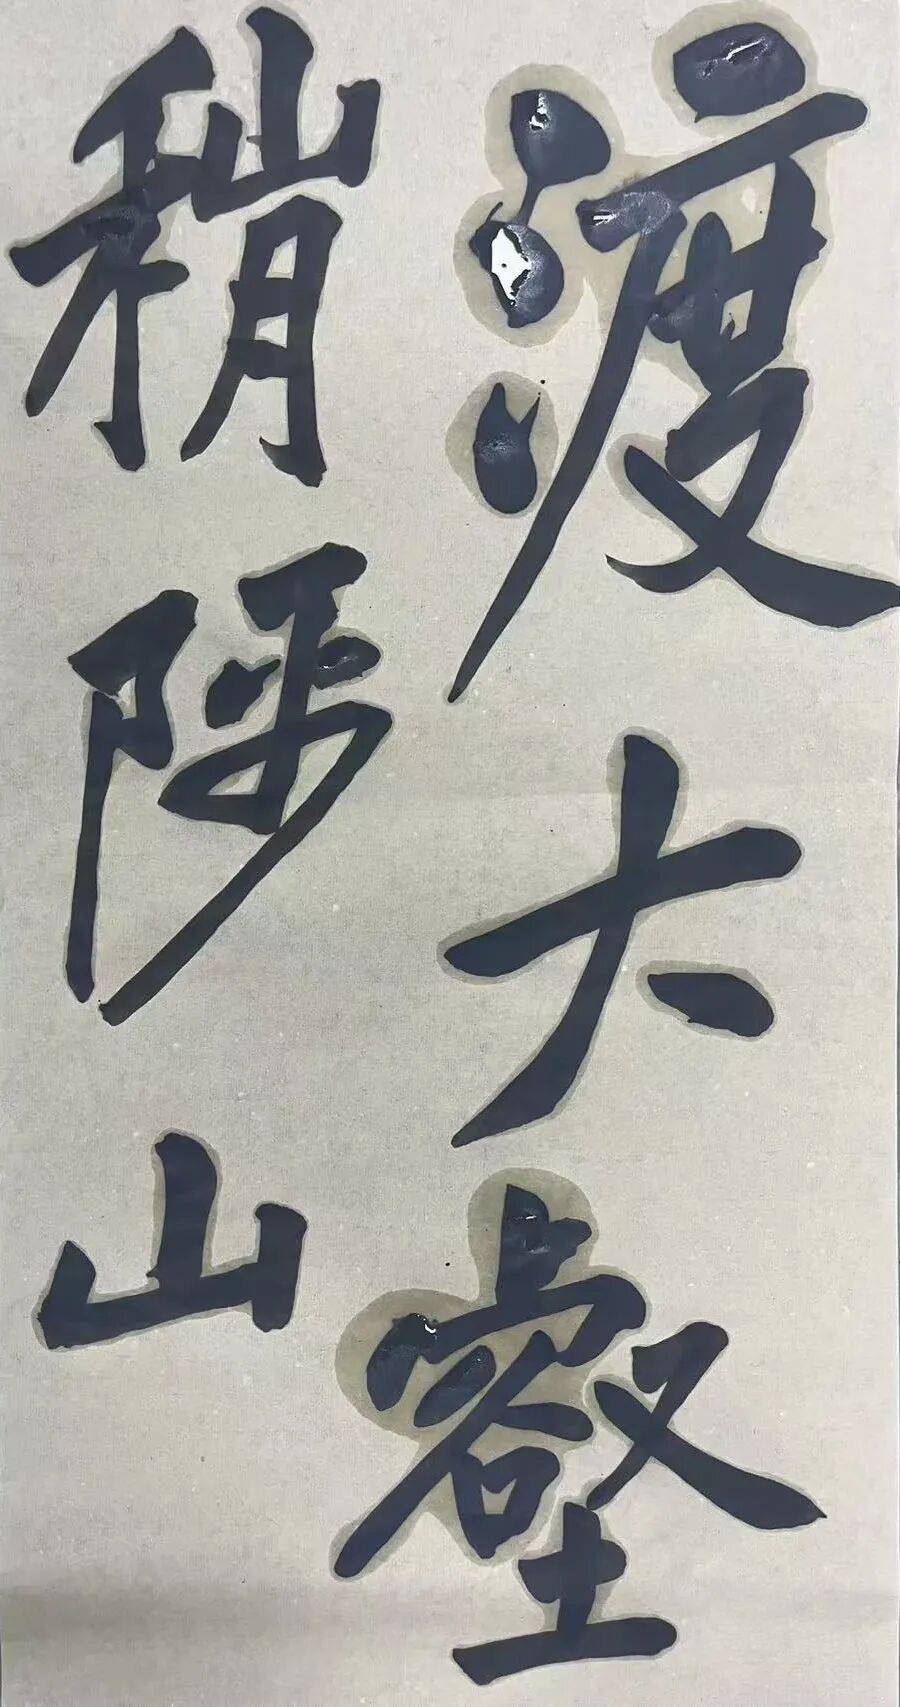 渡大壑
稍陟山